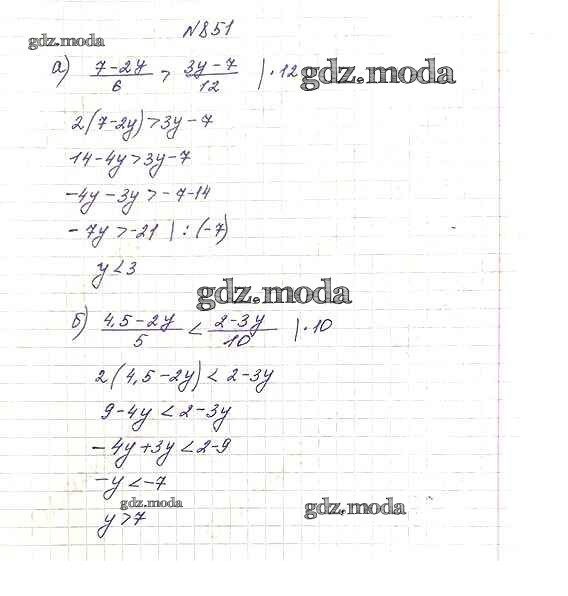 N851
gdz.moda
а) 7-2y/6 > 3y-7/12 |·12 gdz.moda
2(7-2y)>3y-7
14-4y>3y-7
-4y-3y>-7-14
-7y>-21 |:(-7)
y<3
gdz.moda
б) 4,5-2y/5 < 2-3y/10 |·10
2(4,5-2y)<2-3y
9-4y<2-3y
-4y+3y<2-9
-y<-7
gdz.moda gdz.moda
y>7